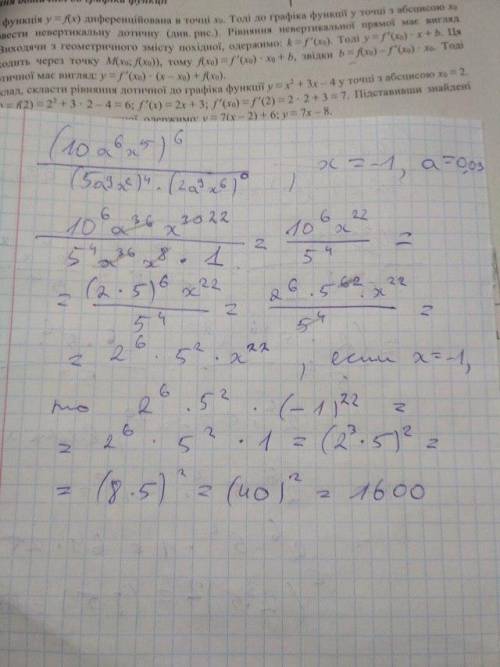 функція y = f(x) диференційована в точці x₀. Тоді до графіка функції у точці з абсцисою x₀
вести невертикальну дотичну (див. рис.). Рівняння невертикальної прямої має вигляд
Виходячи з геометричного змісту похідної, одержимо: k = f'(x₀). Тоді y = f'(x₀) · x + b. Ця
одить через точку M(x₀; f(x₀)), тому f(x₀) = f'(x₀) · x₀ + b, звідки b = f(x₀) – f'(x₀) · x₀. Тоді
отичної має вигляд: y = f'(x₀) · (x – x₀) + f(x₀).
клад, скласти рівняння дотичної до графіка функції y = x² + 3x – 4 у точці з абсцисою x₀ = 2.
= f(2) = 2² + 3 · 2 – 4 = 6; f'(x) = 2x + 3; f'(x₀) = f'(2) = 2 · 2 + 3 = 7. Підставивши знайдені
одержимо: y = 7(x – 2) + 6; y = 7x – 8.
(10a⁶x⁵)⁶
(5a⁹x²)⁴ · (2a³x⁶)⁰ , x = -1, a = 0,03
10⁶a³⁶x³⁰ ²² / 5⁴a³⁶x⁸ · 1 = 10⁶x²² / 5⁴ =
= (2 · 5)⁶ x²² / 5⁴ = 2⁶ · 5⁶ ² · x²² / 5⁴ =
= 2⁶ · 5² · x²² , если x = -1,
то 2⁶ · 5² · (-1)²² =
= 2⁶ · 5² · 1 = (2³ · 5)² =
= (8 · 5)² = (40)² = 1600